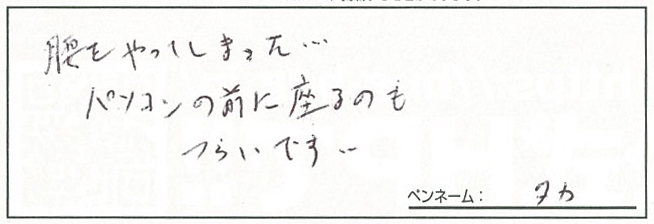 腰をやってしまった…
パソコンの前に座るのも
つらいです…
ペンネーム： タカ